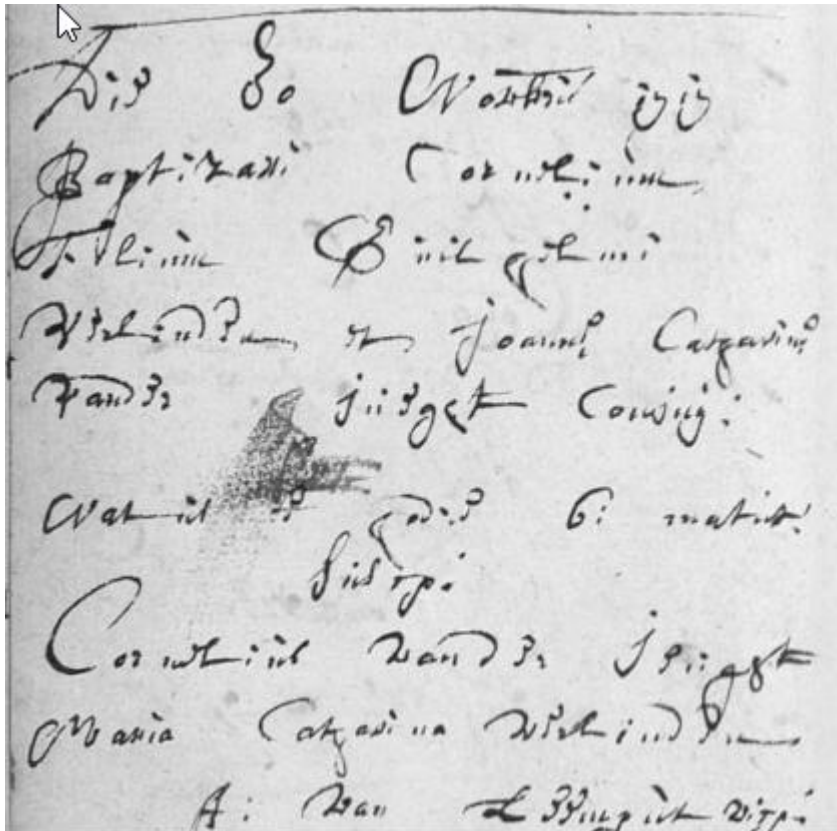 Die 80 Novembris 1717
Baptizavi Cornelium
filium Guilhelmi
Verlinden et Joannæ Catharinæ
Vander Jeught Coniug:
Natus est hodie 6: matut:
Suscep:
Cornelius Vander Jeught
Maria Catharina Verlinden
A: Van vicep: